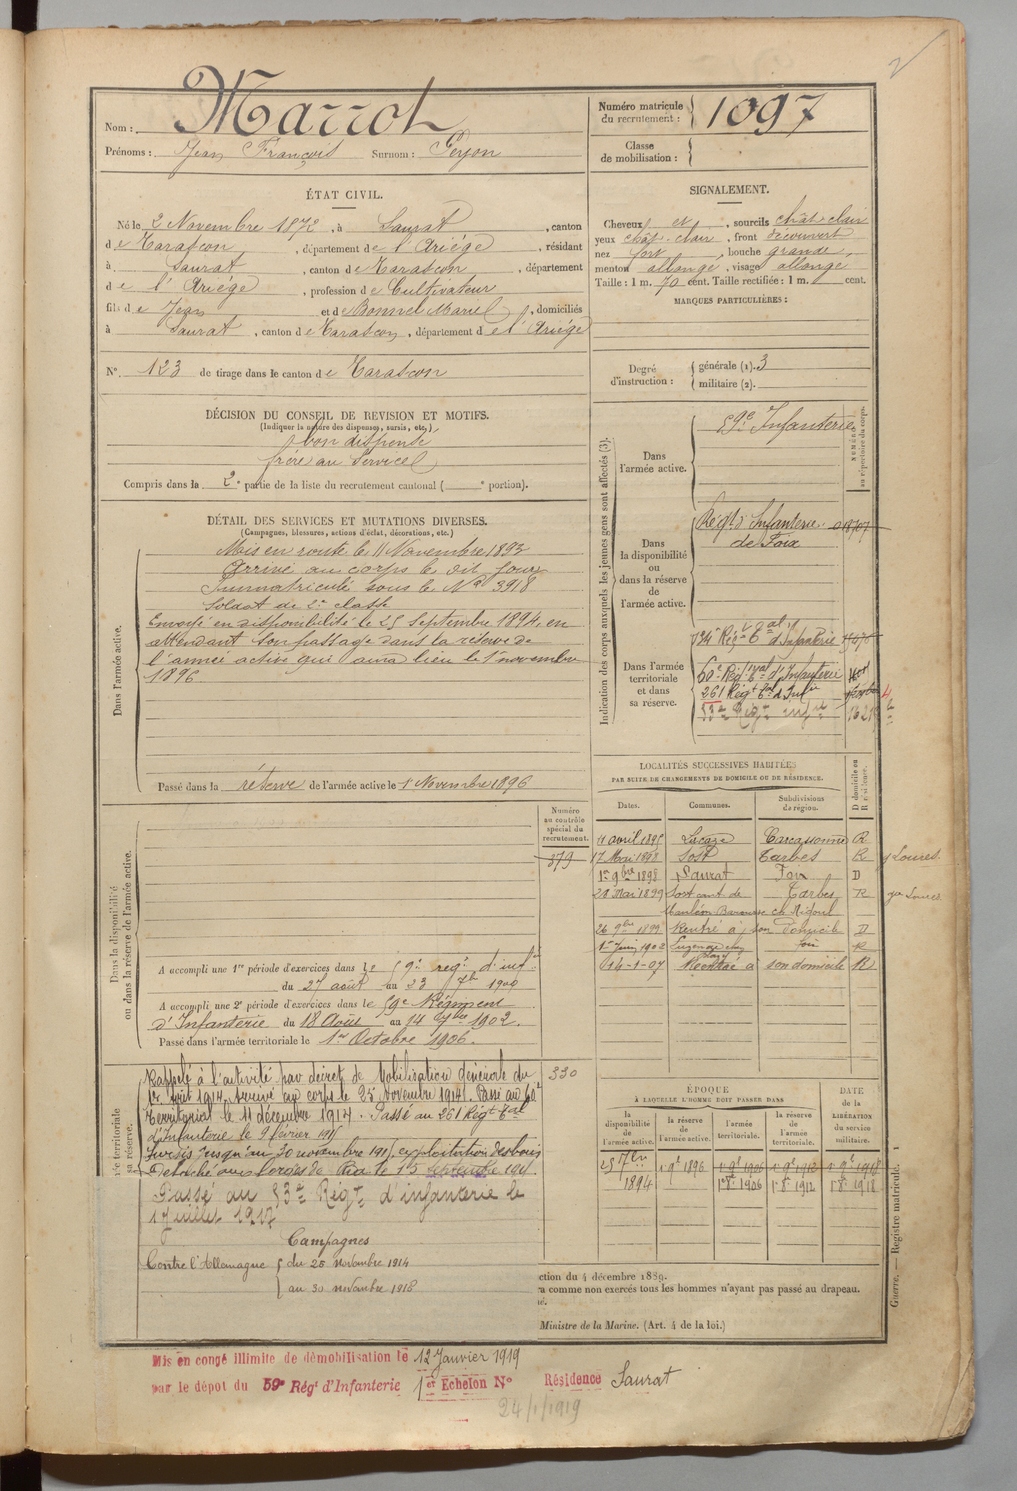 2
Nom : Marrot
Prénoms : Jean François Surnom : Geyon
Numéro matricule du recrutement : 1097
Classe de mobilisation :
ÉTAT CIVIL.
Né le 2 Novembre 1872, à Saurat, canton
de Tarascon, département de l'Ariége, résidant
à Saurat, canton de Tarascon, département
de l'Ariége, profession de Cultivateur
fils de Jean et de Bonnel Marie, domiciliés
à Saurat, canton de Tarascon, département de l'Ariége
N° 123 de tirage dans le canton de Tarascon
SIGNALEMENT.
Cheveux et, sourcils chât-clair
yeux chât-clair, front découvert
nez fort, bouche grande,
menton allongé, visage allongé
Taille : 1 m. 70 cent. Taille rectifiée : 1 m. cent.
MARQUES PARTICULIÈRES :
Degré d'instruction : générale (1). 3
militaire (2).
DÉCISION DU CONSEIL DE REVISION ET MOTIFS.
(Indiquer la nature des dispenses, sursis, etc.)
bon dispensé
frère au service
Compris dans la 2e partie de la liste du recrutement cantonal ( e portion).
DÉTAIL DES SERVICES ET MUTATIONS DIVERSES.
(Campagnes, blessures, actions d'éclat, décorations, etc.)
Dans l'armée active.
Mis en route le 11 Novembre 1893
Arrivé au corps le dit jour
Immatriculé sous le No 3918
Soldat de 2e classe
Envoyé en disponibilité le 25 Septembre 1894, en
attendant son passage dans la réserve de
l'armée active qui aura lieu le 1er novembre
1896
Passé dans la réserve de l'armée active le 1er Novembre 1896
Indication des corps auxquels les jeunes gens sont affectés (3).
NUMÉRO au répertoire du corps.
Dans l'armée active.
59e Infanterie
Dans la disponibilité ou dans la réserve de l'armée active.
Régt d'Infanterie 018707
de Foix
Dans l'armée territoriale et dans sa réserve.
134e Régt tal d'Infanterie
60e Régt tal d'Infanterie
261 Régt tal d'Infie
53e Régt infie
LOCALITÉS SUCCESSIVES HABITÉES
PAR SUITE DE CHANGEMENTS DE DOMICILE OU DE RÉSIDENCE.
Dates. Communes. Subdivisions de région. D domicile ou R résidence.
11 avril 1895 Lacaze Carcassonne R
17 Mai 1898 Sost Tarbes R gie Loures
1er 9bre 1898 Saurat Foix D
21 Mai 1899 Sost cant de Tarbes R gie Loures
Mauléon Barousse ch Rigoul
26 9bre 1899 Rentré à son Domicile D
1er Juin 1902 Foix R
14-1-07 Rentré à son domicile R
Numéro au contrôle spécial du recrutement.
379
Dans la disponibilité ou dans la réserve de l'armée active.
A accompli une 1re période d'exercices dans le 59e regt d'infie
du 27 août au 23 7bre 1900
A accompli une 2e période d'exercices dans le 59e Régiment
d'Infanterie du 18 Août au 14 7bre 1902.
Passé dans l'armée territoriale le 1er Octobre 1906.
330
territoriale sa réserve.
Rappelé à l'activité par décret de Mobilisation Générale du
1er août 1914, arrivé au corps le 25 Novembre 1914. Passé au 60e
Territorial le 11 décembre 1914. Passé au 261 Régt tal
d'Infanterie le 9 février 1915
Sursis jusqu'au 30 novembre 191 exploitation des bois
Passé au 53e Régt d'infanterie le
1 Juillet 1917
Campagnes
Contre l'Allemagne du 25 novembre 1914
au 30 novembre 1918
ÉPOQUE
À LAQUELLE L'HOMME DOIT PASSER DANS
la disponibilité de l'armée active. la réserve de l'armée active. l'armée territoriale. la réserve de l'armée territoriale. DATE de la LIBÉRATION du service militaire.
25 7bre 1894
1er 9e 1896 1er 9e 1906 1er 9e 1912 1er 9e 1918
1er 8e 1906 1er 8e 1912 1er 8e 1918
ction du 4 décembre 1889.
a comme non exercés tous les hommes n'ayant pas passé au drapeau.
Ministre de la Marine. (Art. 4 de la loi.)
Guerre. — Registre matricule. 1
Mis en congé illimité de démobilisation le 12 Janvier 1919
par le dépôt du 59e Régt d'Infanterie 1er Echelon N° Résidence Saurat
24/1/1919